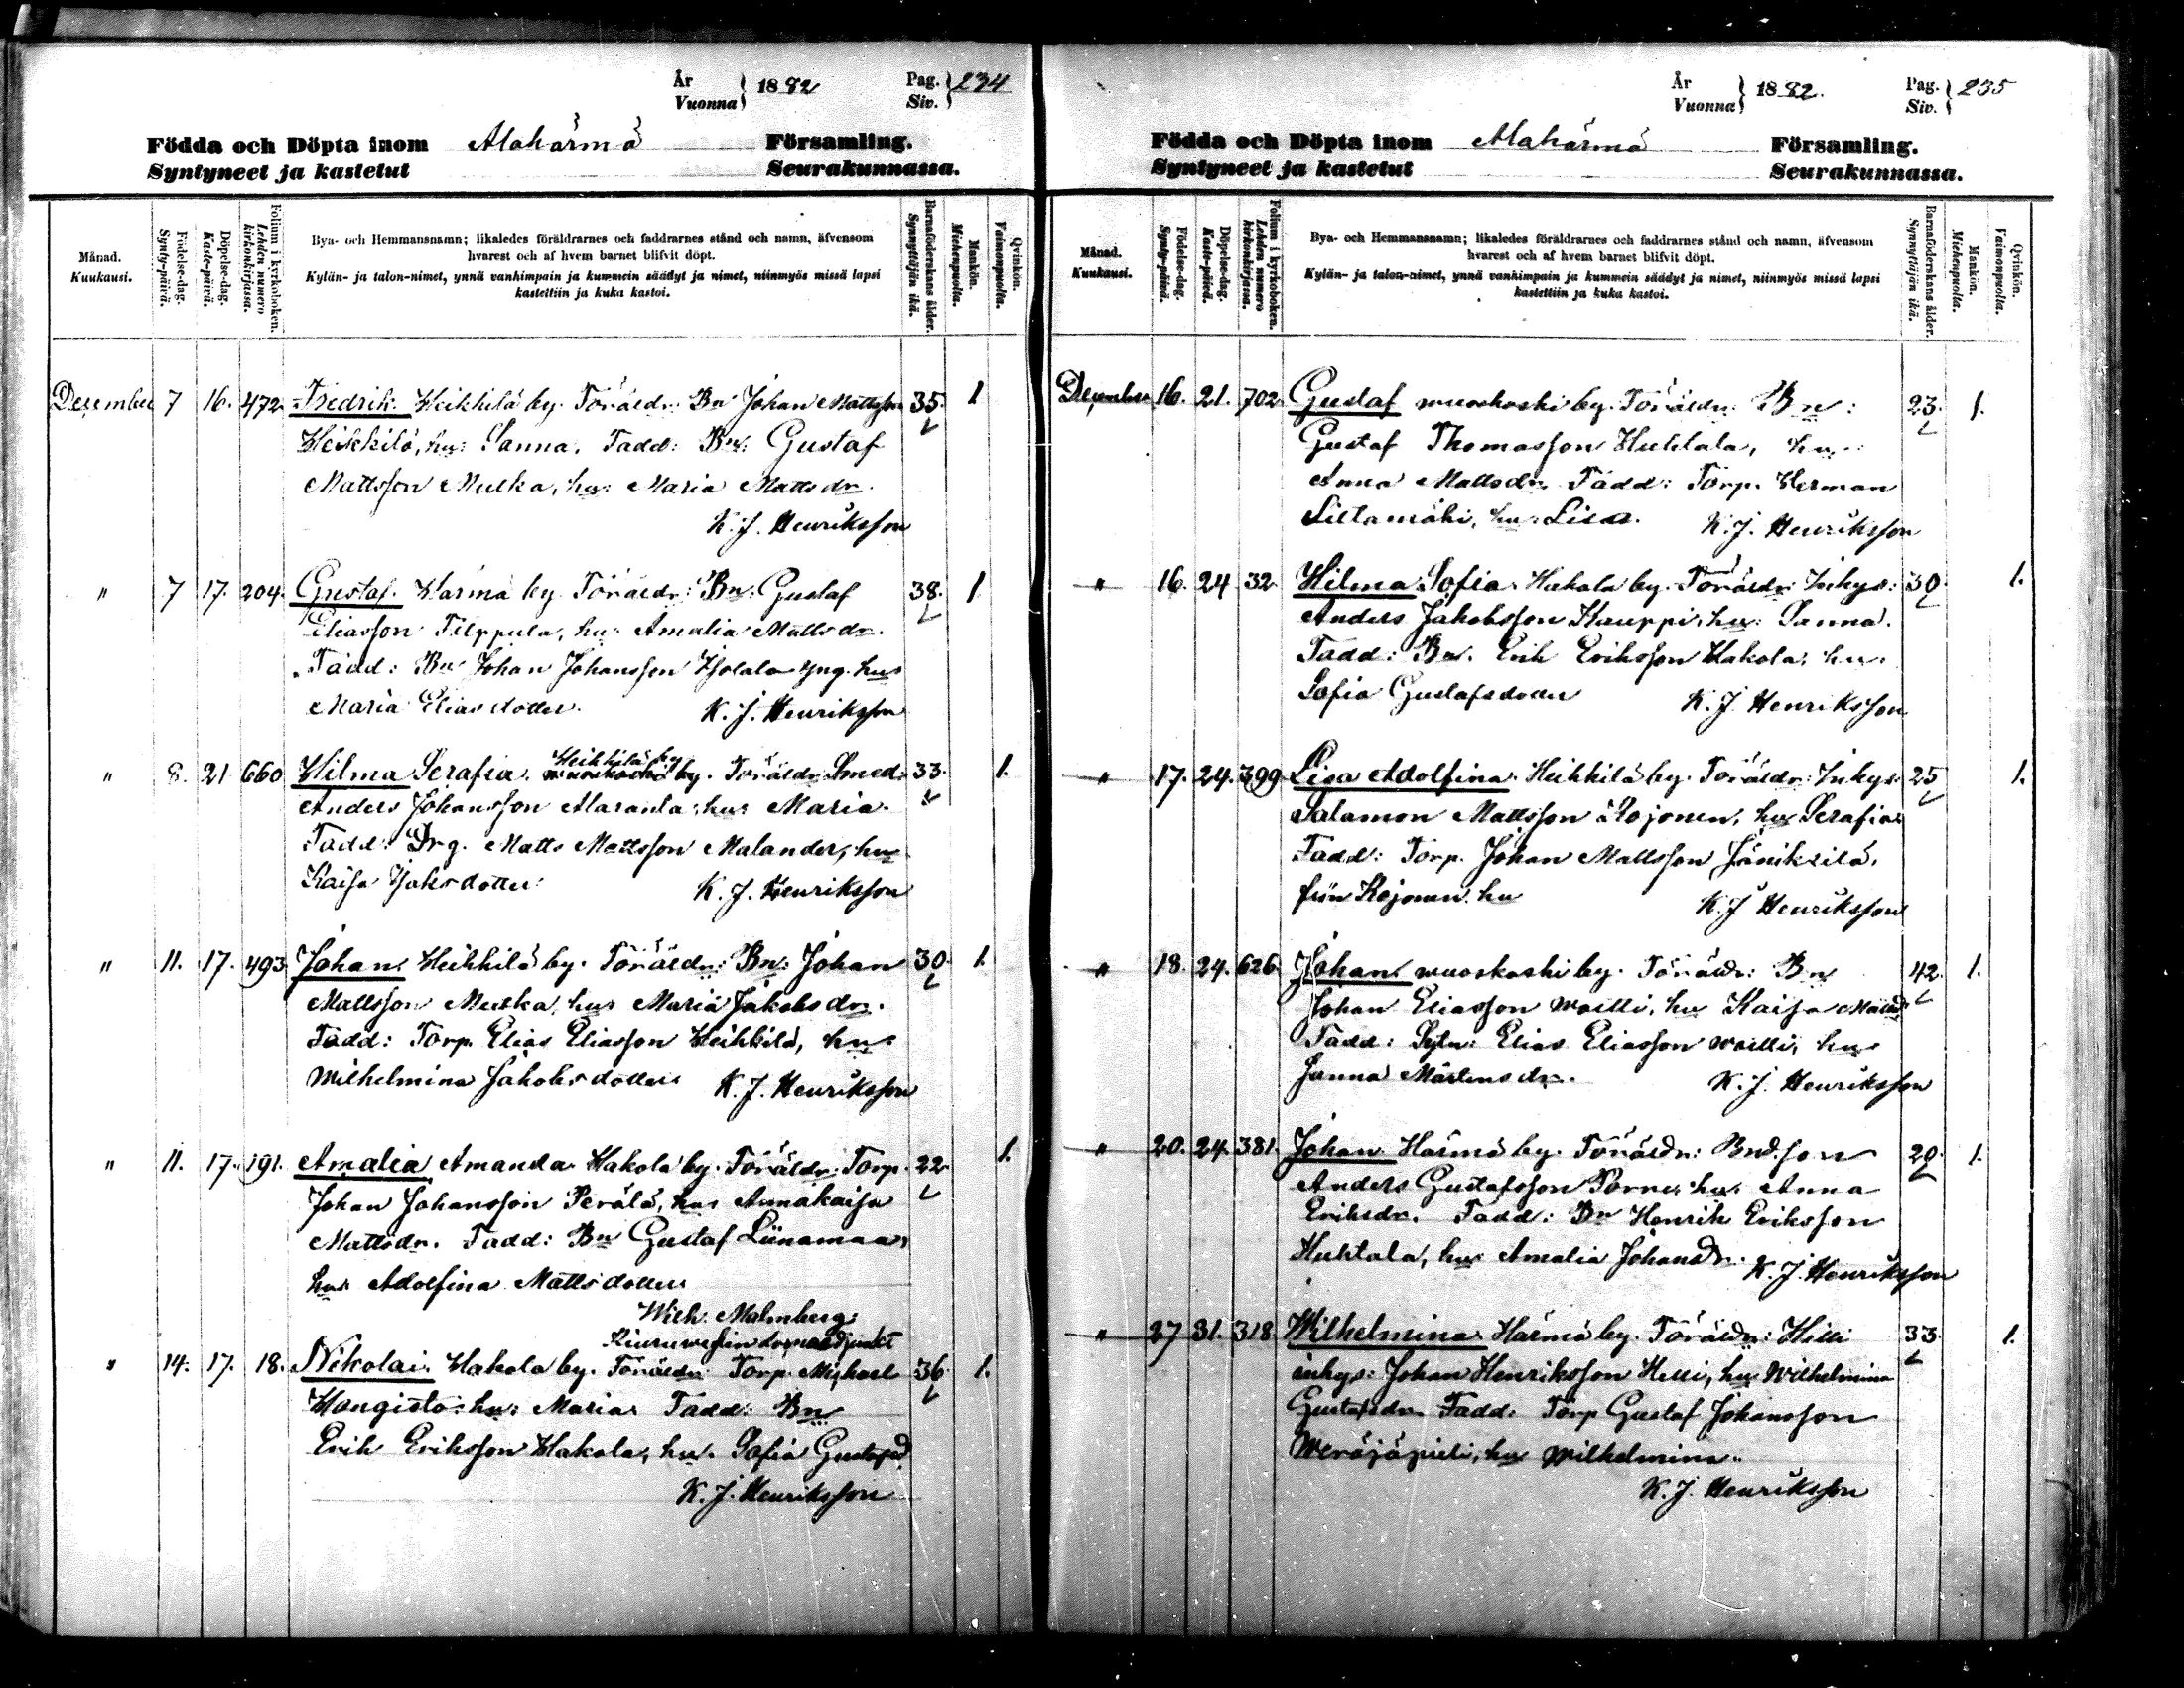 År
Vuonna
1882
Pag.
Siv.
234
Födda och Döpta inom Alahärmä Församling.
Syntyneet ja kastetut Seurakunnassa.
Månad.
Kuukausi.
Födelse-dag.
Synty-päivä.
Döpelse-dag.
Kaste-päivä.
Folium i kyrkoboken.
Lehden numero kirkonkirjassa.
Bya- och Hemmansnamn; likaledes föräldrarnes och faddrarnes stånd och namn, äfvensom
hvarest och af hvem barnet blifvit döpt.
Kylän- ja talon-nimet, ynnä vanhimpain ja kummein säädyt ja nimet, niinmyös missä lapsi
kastettiin ja kuka kastoi.
Barnaföderskans ålder.
Synnyttäjän ikä.
Mankön.
Miehenpuolta.
Qvinkön.
Vaimonpuolta.
December 7 16. 472. Fredrik. Heikkilä by. Föräldr: Bn Johan Mattsson 35. 1
Heikkilä, hu: Sanna. Fadd: Bn: Gustaf
Mattsson Mutka, hu: Maria Mattsdr.
K. J. Henriksson
" 7 17. 204. Gustaf. Härmä by. Föräldr: Bn: Gustaf 38. 1
Eliasson Filppula, hu: Amalia Mattsdr.
Fadd: Bn Johan Johansson yng. hu:
Maria Eliasdotter. K. J. Henriksson
" 8. 21 660 Hilma Serafia. Heikkilä by by. Föräldr: Smed. 33. 1.
Anders Johansson Alaranta, hu: Maria.
Fadd: Drg. Matts Mattsson Malander, hu
Kaisa dotter. K. J. Henriksson
" 11. 17. 493 Johan. Heikkilä by. Föräldr: Bn: Johan 30. 1.
Mattsson Mutka, hu: Maria Jakobsdr.
Fadd: Torp. Elias Eliasson Heikkilä, hu:
Wilhelmina Jakobsdotter. K. J. Henriksson
" 11. 17. 191. Amalia Amanda. Hakola by. Föräldr: Torp. 22. 1.
Johan Johansson Perälä, hu: Annakaisa
Mattsdr. Fadd: Bn Gustaf Liinamaa,
hu: Adolfina Mattsdotter.
Wilh. Malmberg.
" 14. 17. 18. Nikolai. Hakola by. Föräldr: Torp. Michael 36. 1.
Hangisto. hu: Maria. Fadd: Bn
Erik Eriksson Hakola, hu. Sofia Gustafsd.
K. J. Henriksson
År
Vuonna
1882.
Pag.
Siv.
235
Födda och Döpta inom Alahärmä Församling.
Syntyneet ja kastetut Seurakunnassa.
Månad.
Kuukausi.
Födelse-dag.
Synty-päivä.
Döpelse-dag.
Kaste-päivä.
Folium i kyrkoboken.
Lehden numero kirkonkirjassa.
Bya- och Hemmansnamn; likaledes föräldrarnes och faddrarnes stånd och namn, äfvensom
hvarest och af hvem barnet blifvit döpt.
Kylän- ja talon-nimet, ynnä vanhimpain ja kummein säädyt ja nimet, niinmyös missä lapsi
kastettiin ja kuka kastoi.
Barnaföderskans ålder.
Synnyttäjän ikä.
Mankön.
Miehenpuolta.
Qvinkön.
Vaimonpuolta.
December 16. 21. 702 Gustaf wuoskoski by. Föräldr: Bn: 23. 1.
Gustaf Thomasson Huhtala, hu:
Anna Mattsdr. Fadd: Torp. Herman
hu: Lisa. K. J. Henriksson
" 16. 24 32. Hilma Sofia. Hakola by. Föräldr: Inhys: 30. 1.
Anders Jakobsson Kauppi, hu: Sanna.
Fadd: Bn. Erik Eriksson Hakola, hu.
Sofia Gustafsdotter K. J. Henriksson
" 17. 24. 399 Lisa Adolfina. Heikkilä by. Föräldr: Inhys: 25 1.
Salamon Mattsson Kojonen, hu Serafia.
Fadd: Torp. Johan Mattsson
från Kojonen. hu K. J Henriksson
" 18. 24. 626. Johan wuoskoski by. Föräldr: Bn 42. 1.
Johan Eliasson Woitti, hu Kaisa
Fadd: Sytn: Elias Eliasson Woitti, hu:
Sanna Mårtensdr. K. J. Henriksson
" 20. 24. 381. Johan Härmä by. Föräldr: Bnd.son 20. 1.
Anders Gustafsson Porre, hu: Anna
Eriksdr. Fadd: Bn Henrik Eriksson
Huhtala, hu: Amalia Johansdr. K. J. Henriksson
" 27 31. 318. Wilhelmina. Härmä by. Föräldr: Hilli 33. 1.
inhys: Johan Henriksson Hilli, hu Wilhelmina
Gustafsdr. Fadd: Torp Gustaf Johansson
hu Wilhelmina.
K. J. Henriksson